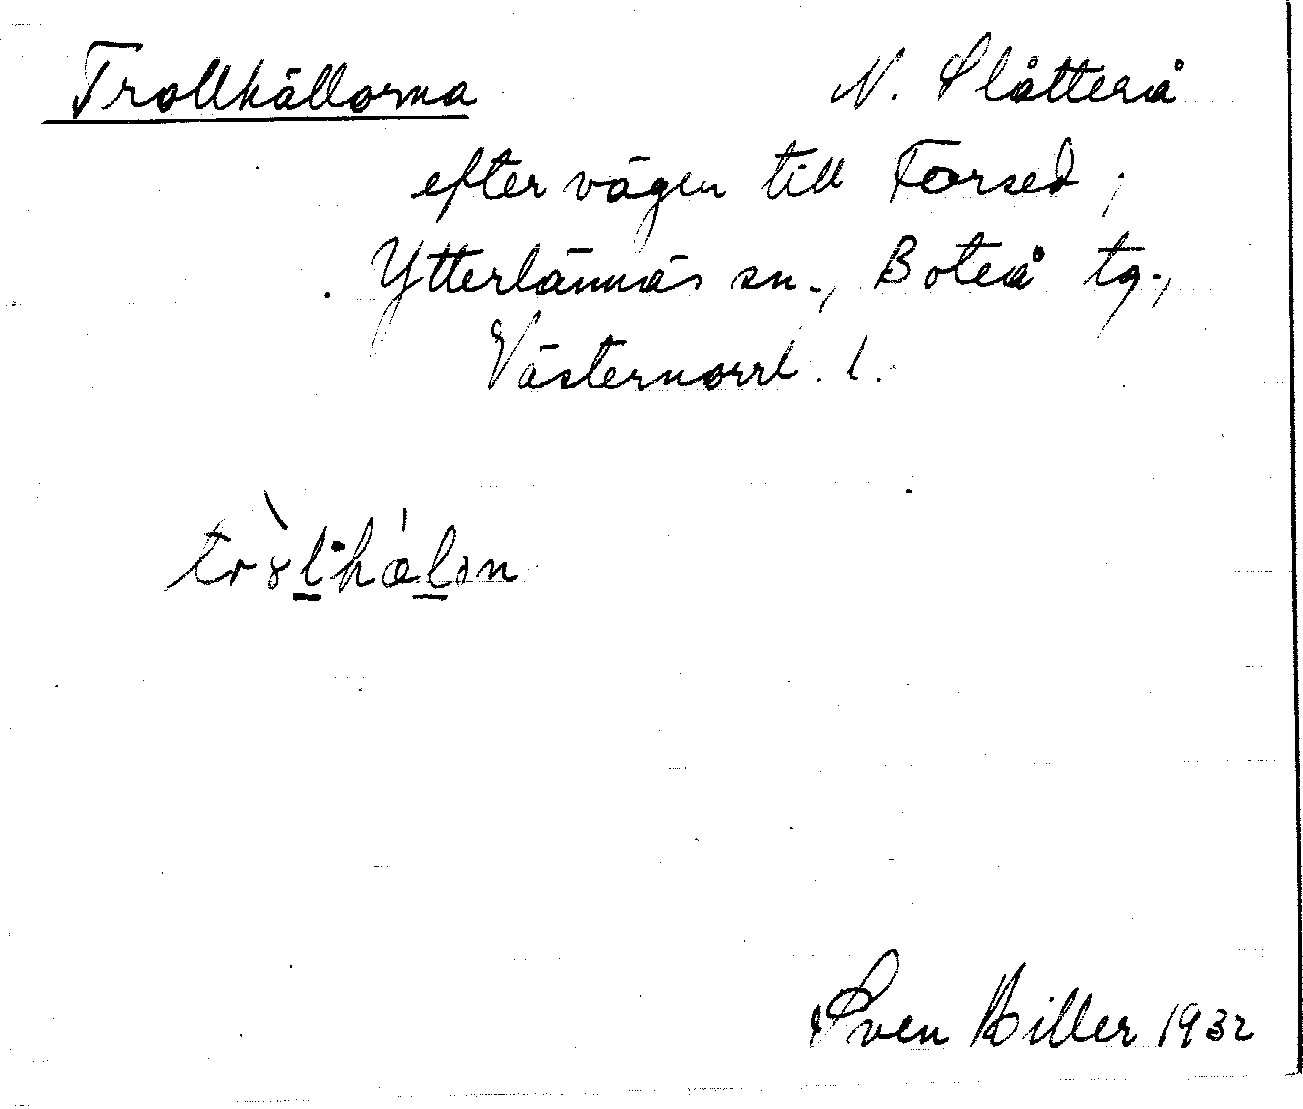 Trollhällorna N. Slåtterå
efter vägen till Forsed,
Ytterlännäs sn., Boteå tg.,
Västernorrl. l.
Sven Hiller 1932